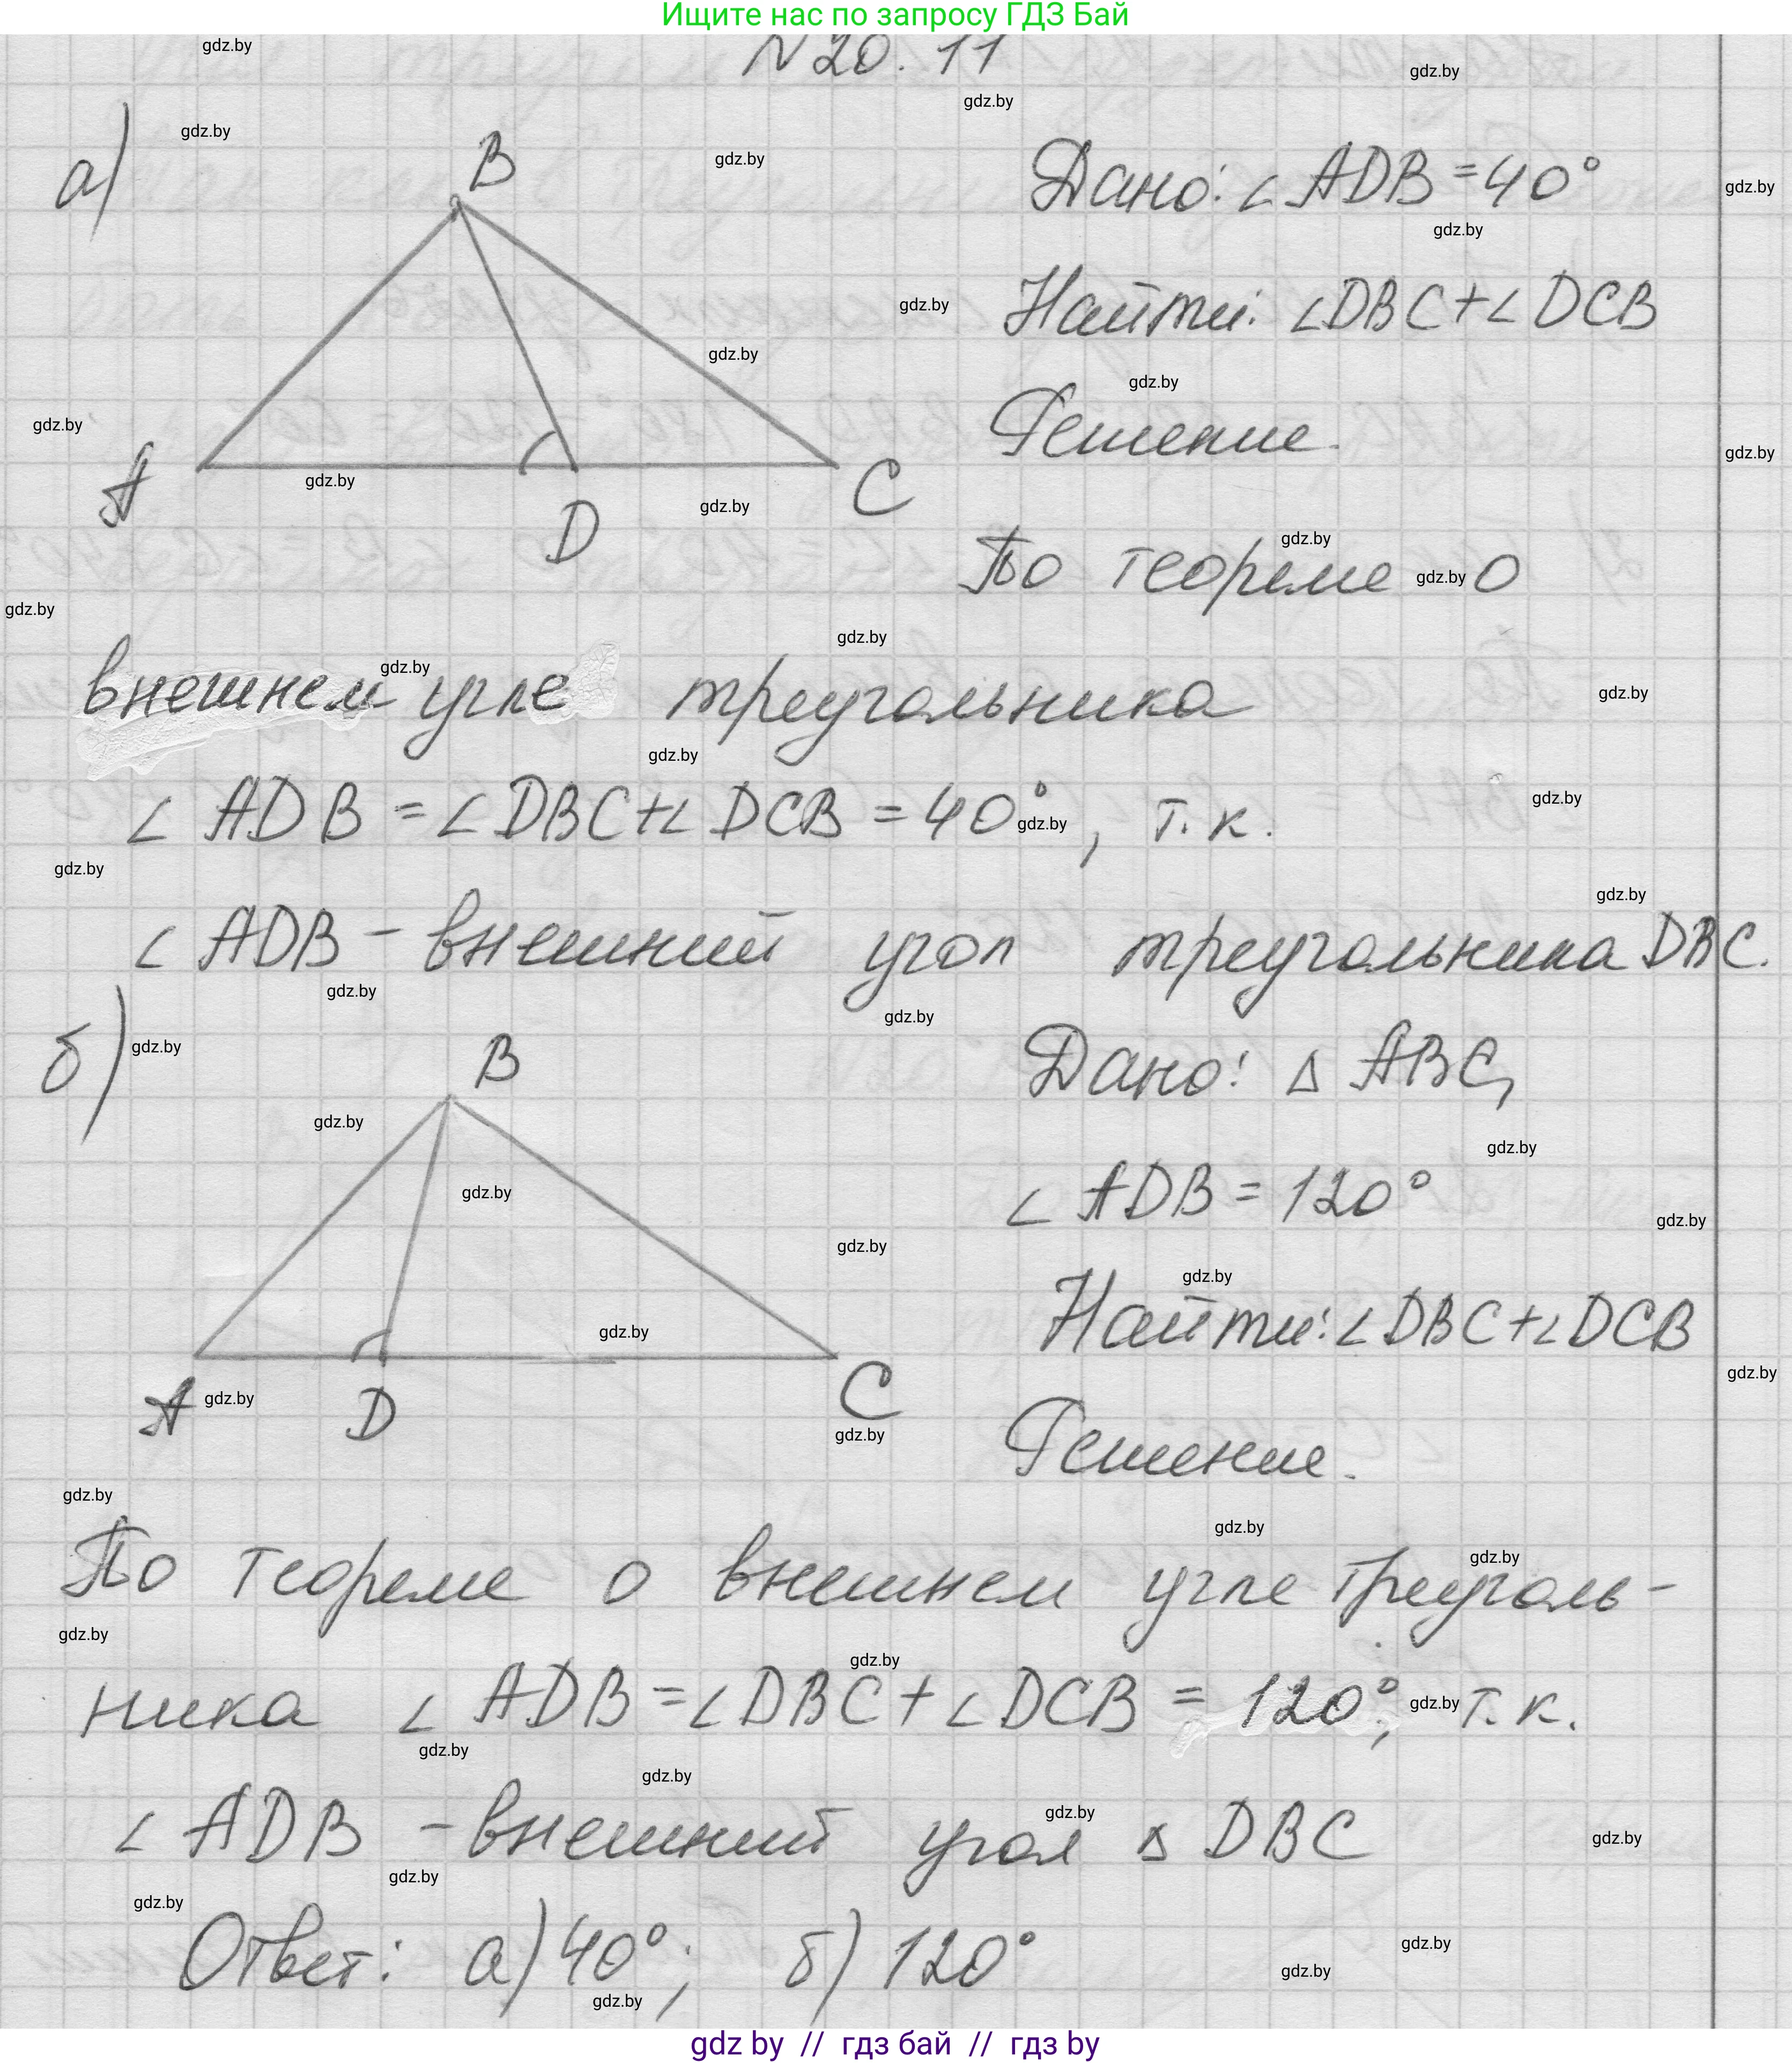 Ищите нас по запросу ГДЗ Бай
N 20. 11
а)
B
A
D
C
Дано: ∠ADB = 40°
Найти: ∠DBC + ∠DCB
Решение.
По теореме о
внешнем угле треугольника
∠ADB = ∠DBC + ∠DCB = 40°, т.к.
∠ADB – внешний угол треугольника DBC.
б)
B
A
D
C
Дано: △ABC,
∠ADB = 120°
Найти: ∠DBC + ∠DCB
Решение.
По теореме о внешнем угле треуголь-
ника ∠ADB = ∠DBC + ∠DCB = 120°, т.к.
∠ADB – внешний угол △DBC
Ответ: а) 40°; б) 120°
gdz by // гдз бай // гдз by